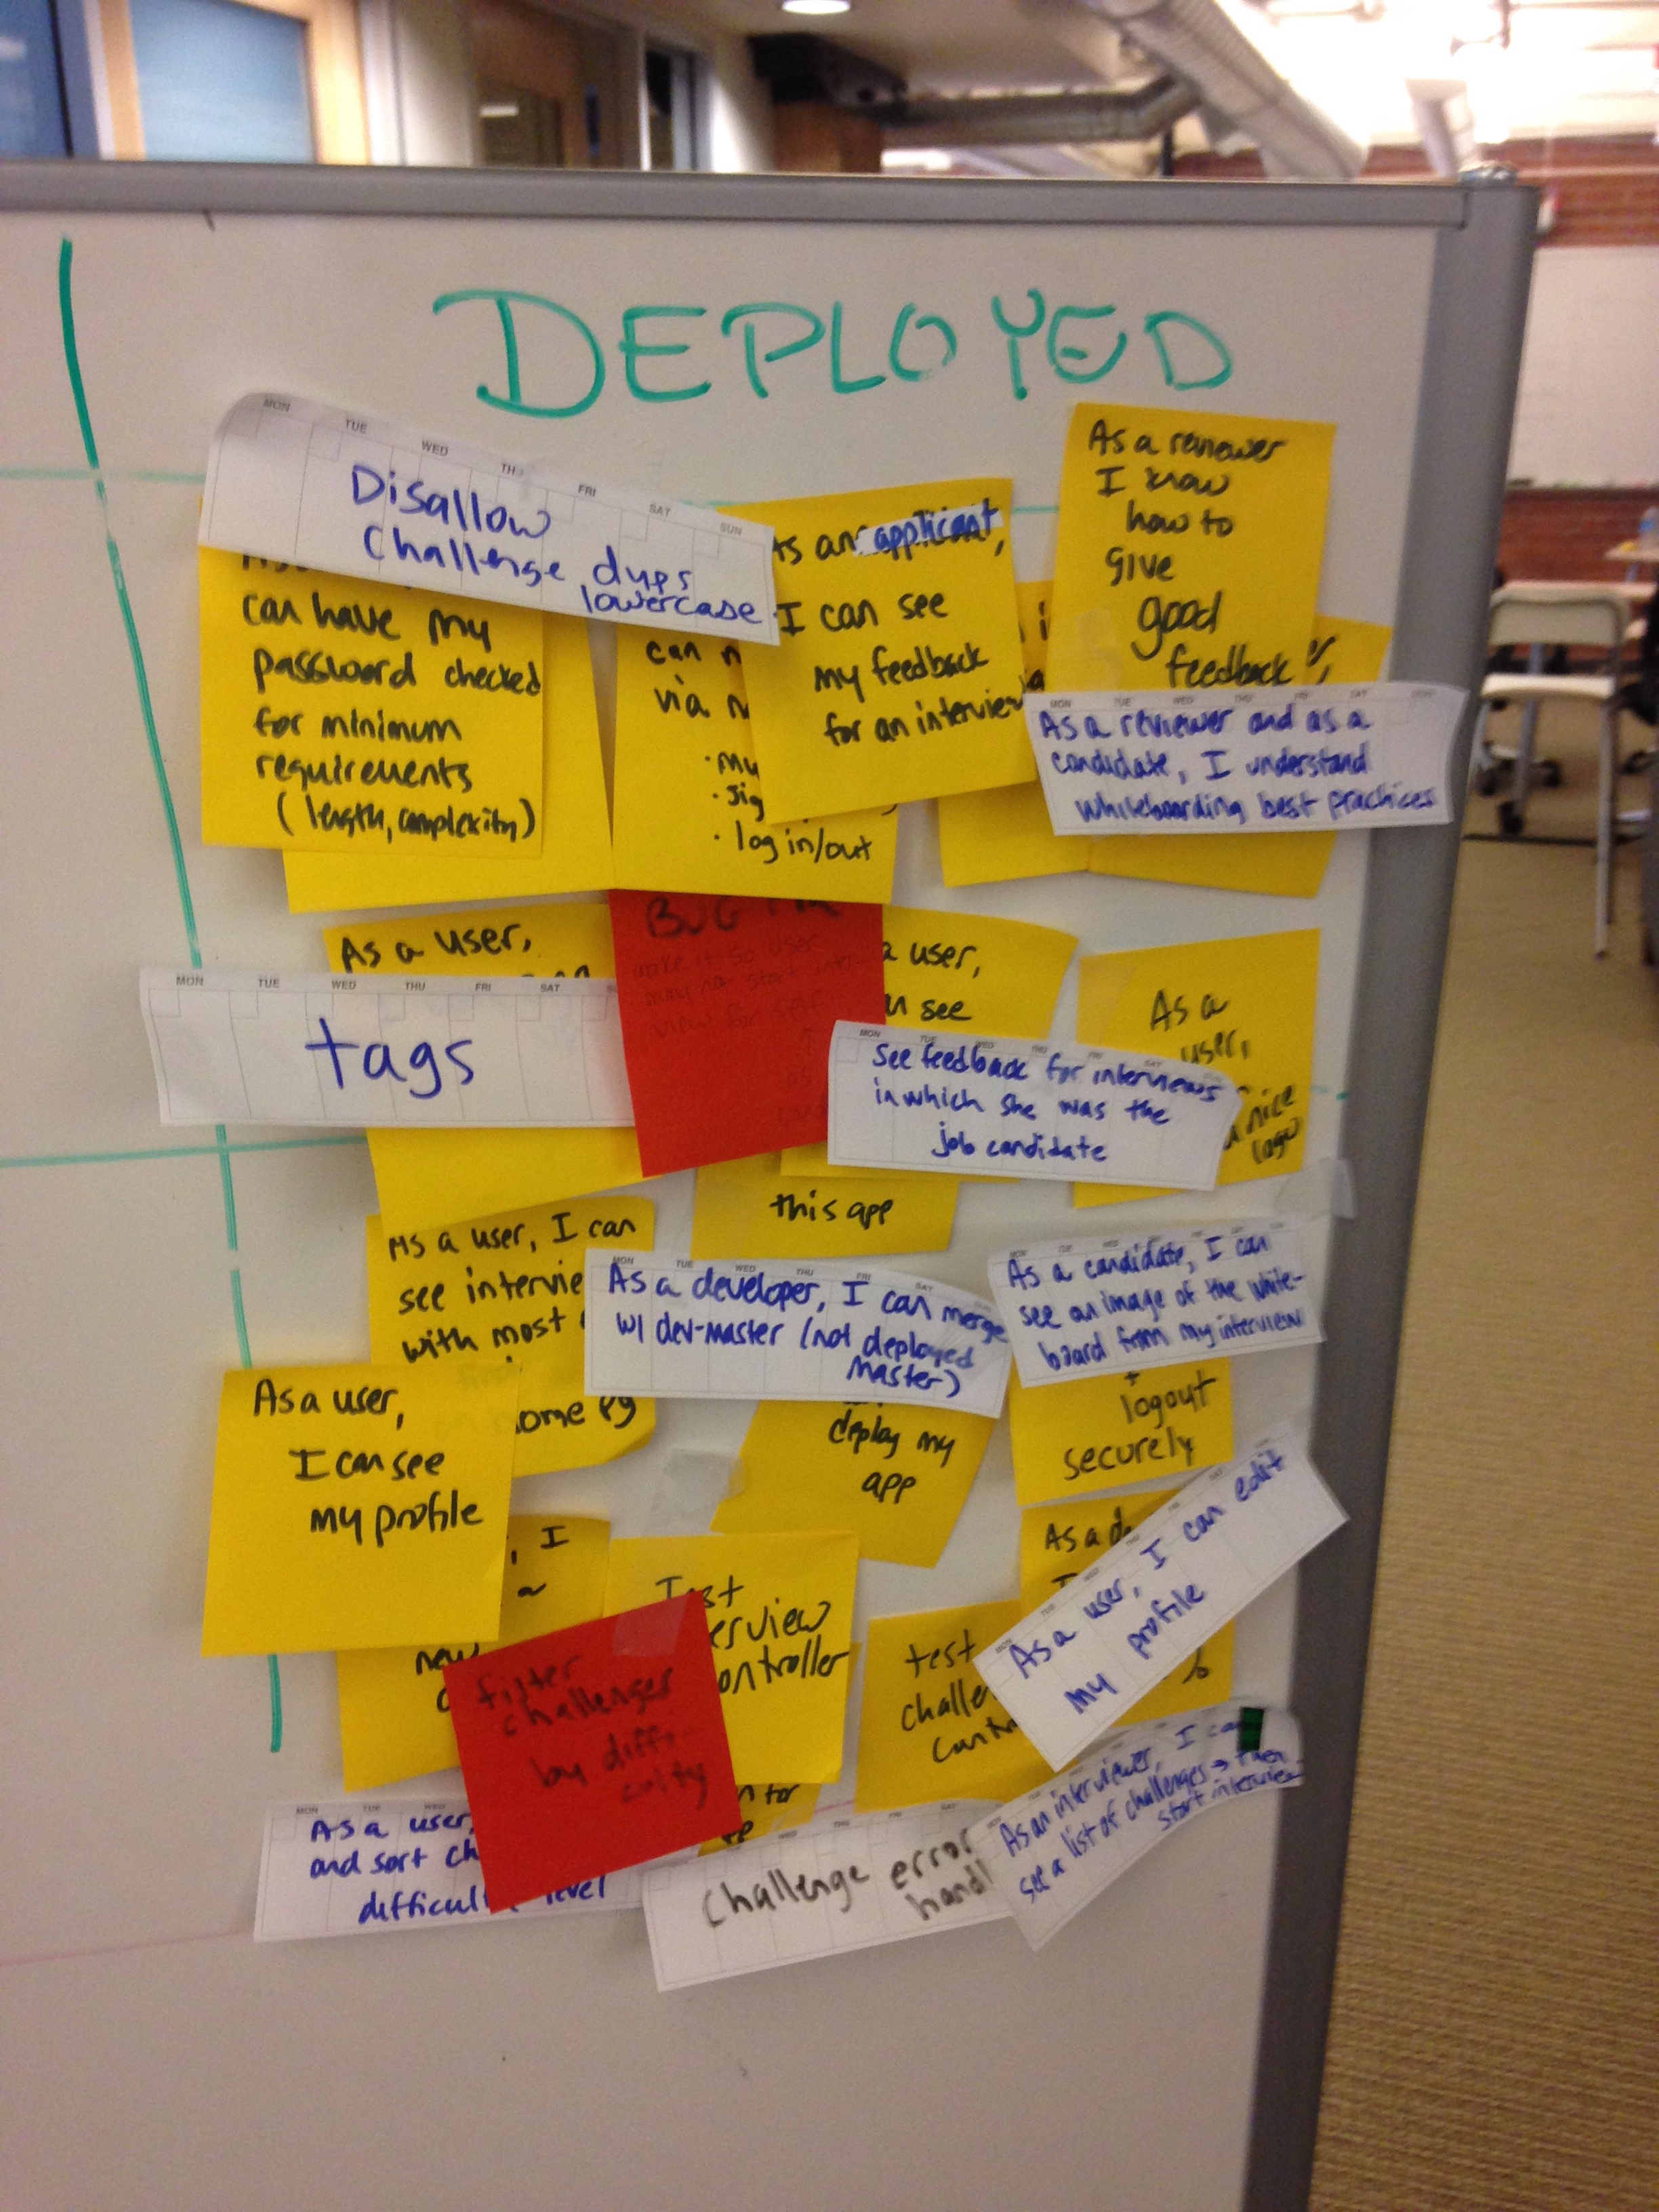 DEPLOYED
MON TUE WED THU FRI SAT SUN
Disallow
Challenge dups
lowercase
can have my
password checked
for minimum
requirements
(length, complexity)
via
log in/out
As an applicant,
I can see
my feedback
for an interview
As a reviewer
I know
how to
give
good
feedback
MON TUE WED THU FRI SAT
As a reviewer and as a
candidate, I understand
whiteboarding best practices
As a user,
MON TUE WED THU FRI SAT
tags
BUG
make it so user
may not start
view for self
a user,
see
MON TUE WED THU FRI SAT
See feedback for interviews
in which she was the
job candidate
As a
user,
nice
logo
this app
As a user, I can
see intervie
with most
first
home pg
MON TUE WED THU FRI SAT
As a developer, I can merge
w/ dev-master (not deployed
master)
As a candidate, I can
see an image of the white-
board from my interview
deploy my
app
+
logout
securely
As a user,
I can see
my profile
, I
new
Test
erview
ontroller
filter
challenges
by diffi-
culty
test
challe
As a
As a user, I can edit
my profile
MON TUE WED
As a user,
and sort ch
difficul level
Challenge error
handl
As an interviewer, I can
see a list of challenges → then
start interview